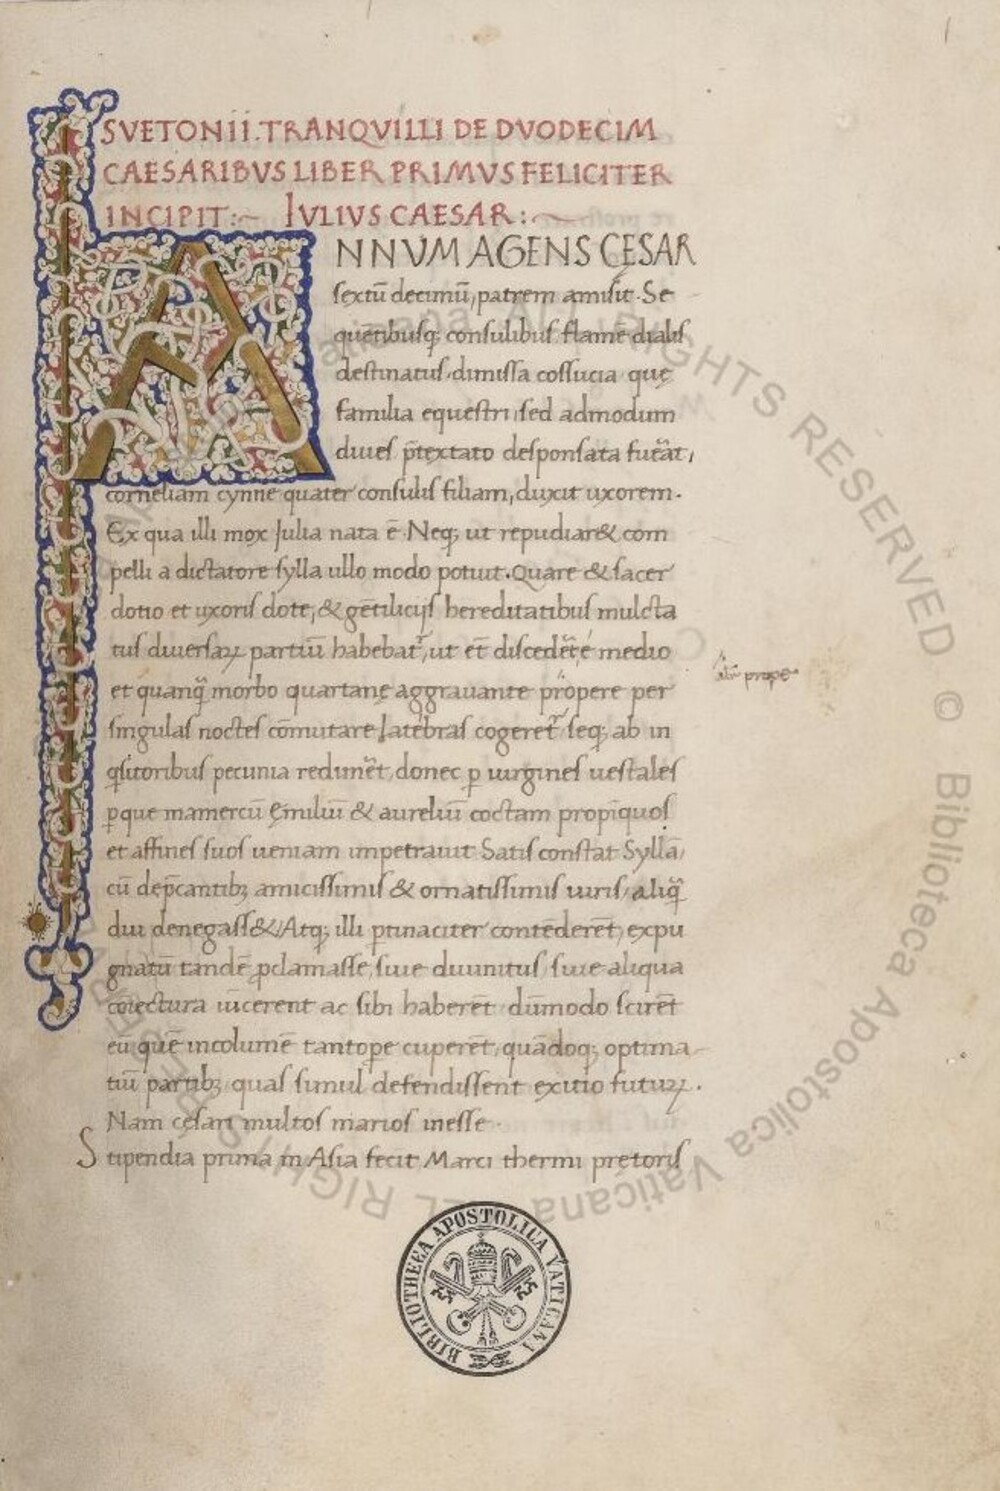 SVETONII.TRANQVILLI DE DVODECIM
CAESARIBVS LIBER PRIMVS FELICITER
INCIPIT:~ IVLIVS CAESAR:~
ANNVM AGENS CĘSAR
sextū decimū, patrem amisit. Se
quētibusq; consulibus flamē dialis
destinatus, dimissa cossucia quę
familia equestri, sed admodum
diues p̄textato desponsata fuēat,
corneliam cynnę quater consulis filiam, duxit uxorem.
Ex qua illi mox Julia nata ē. Neq; ut repudiar& com
pelli a dictatore sylla ullo modo potuit. Quare & sacer
dotio et uxoris dote, & gētilicijs hereditatibus mulcta
tus diuersaꝝ partiū habebat᷑, ut et̄ discedēt é medio
et quanq̄ morbo quartanę aggrauante propere per
singulas noctes cōmutare latebras cogeret᷑ seq; ab in
q̇sitoribus pecunia redimēt, donec ꝑ uirgines uestales
ꝑque mamercū ęmiliū & aureliū coctam propīquos
et affines suos ueniam impetrauit. Satis constat Syllā,
cū dep̄cantibꝫ amicissimis & ornatissimis uiris, aliq̄
diu denegass&, Atq; illi ꝑtinaciter contēderēt, expu
gnatū tandē ꝓclamasse, siue diuinitus, siue aliqua
coiectura uīcerent ac sibi haberēt, dūmodo scirēt
eū quē incolumē tantoꝑe cuperēt, quādoq; optima
tiū partibꝫ, quas simul defendissent exitio futuꝝ.
Nam cęsari multos marios inesse.
Stipendia prima in Asia fecit Marci thermi prętoris
prope
BIBLIOTHECA APOSTOLICA VATICANA
ALL RIGHTS RESERVED © Biblioteca Apostolica Vaticana